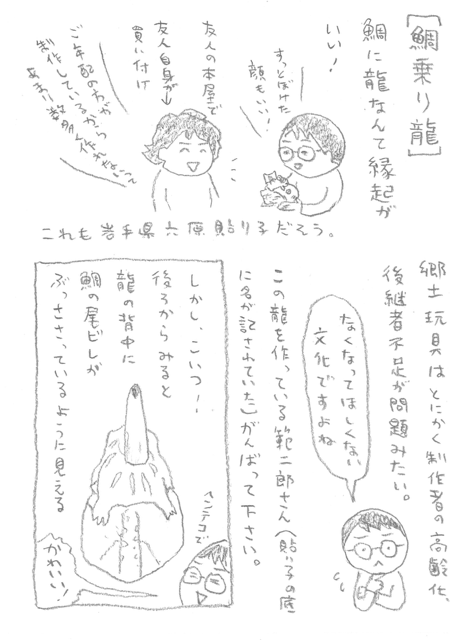 [鯛乗り龍]
鯛に龍なんて縁起が
いい！
すっとぼけた
顔もいい！
友人の本屋で
友人自身が↓
買い付け
ご年配の方が
制作しているから
あまり数多く作れないって
これも岩手県六原貼り子だそう。
郷土玩具はとにかく制作者の高齢化、
後継者不足が問題みたい。
なくなってほしくない
文化ですよね
この龍を作っている範二郎さん(貼り子の底
に名が記されていた)がんばって下さい。
しかし、こいつ！
後ろからみると
龍の背中に
鯛の尾ビレが
ぶっささっているように見える
ヘンテコで
かわいい！